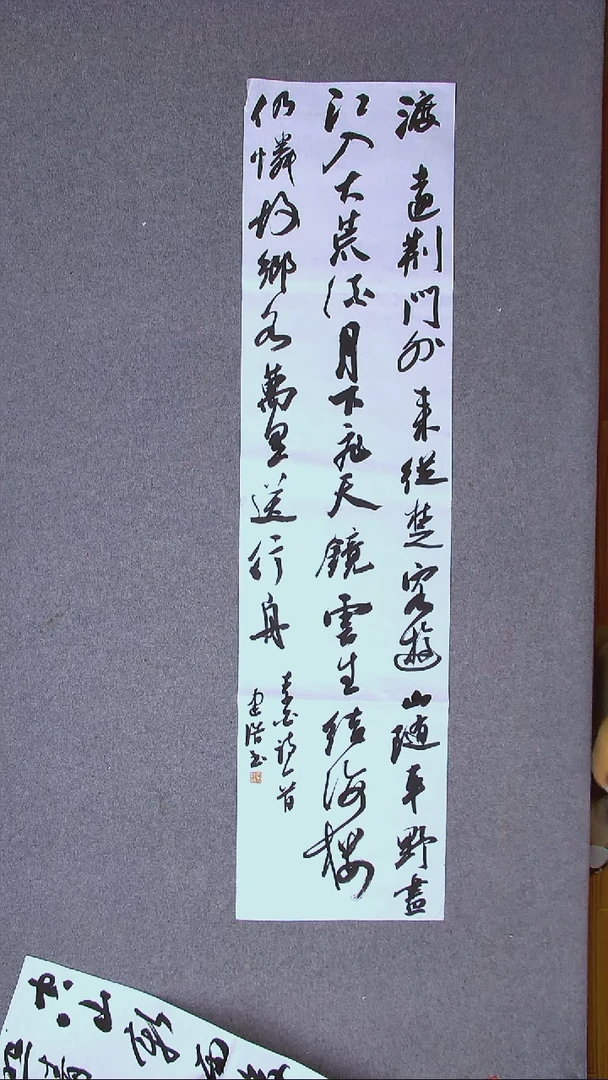 渡遠荆門外來從楚客遊山隨平野盡
江入大荒流月下飛天鏡雲生結海樓
仍憐故鄉水萬里送行舟
李白詩一首